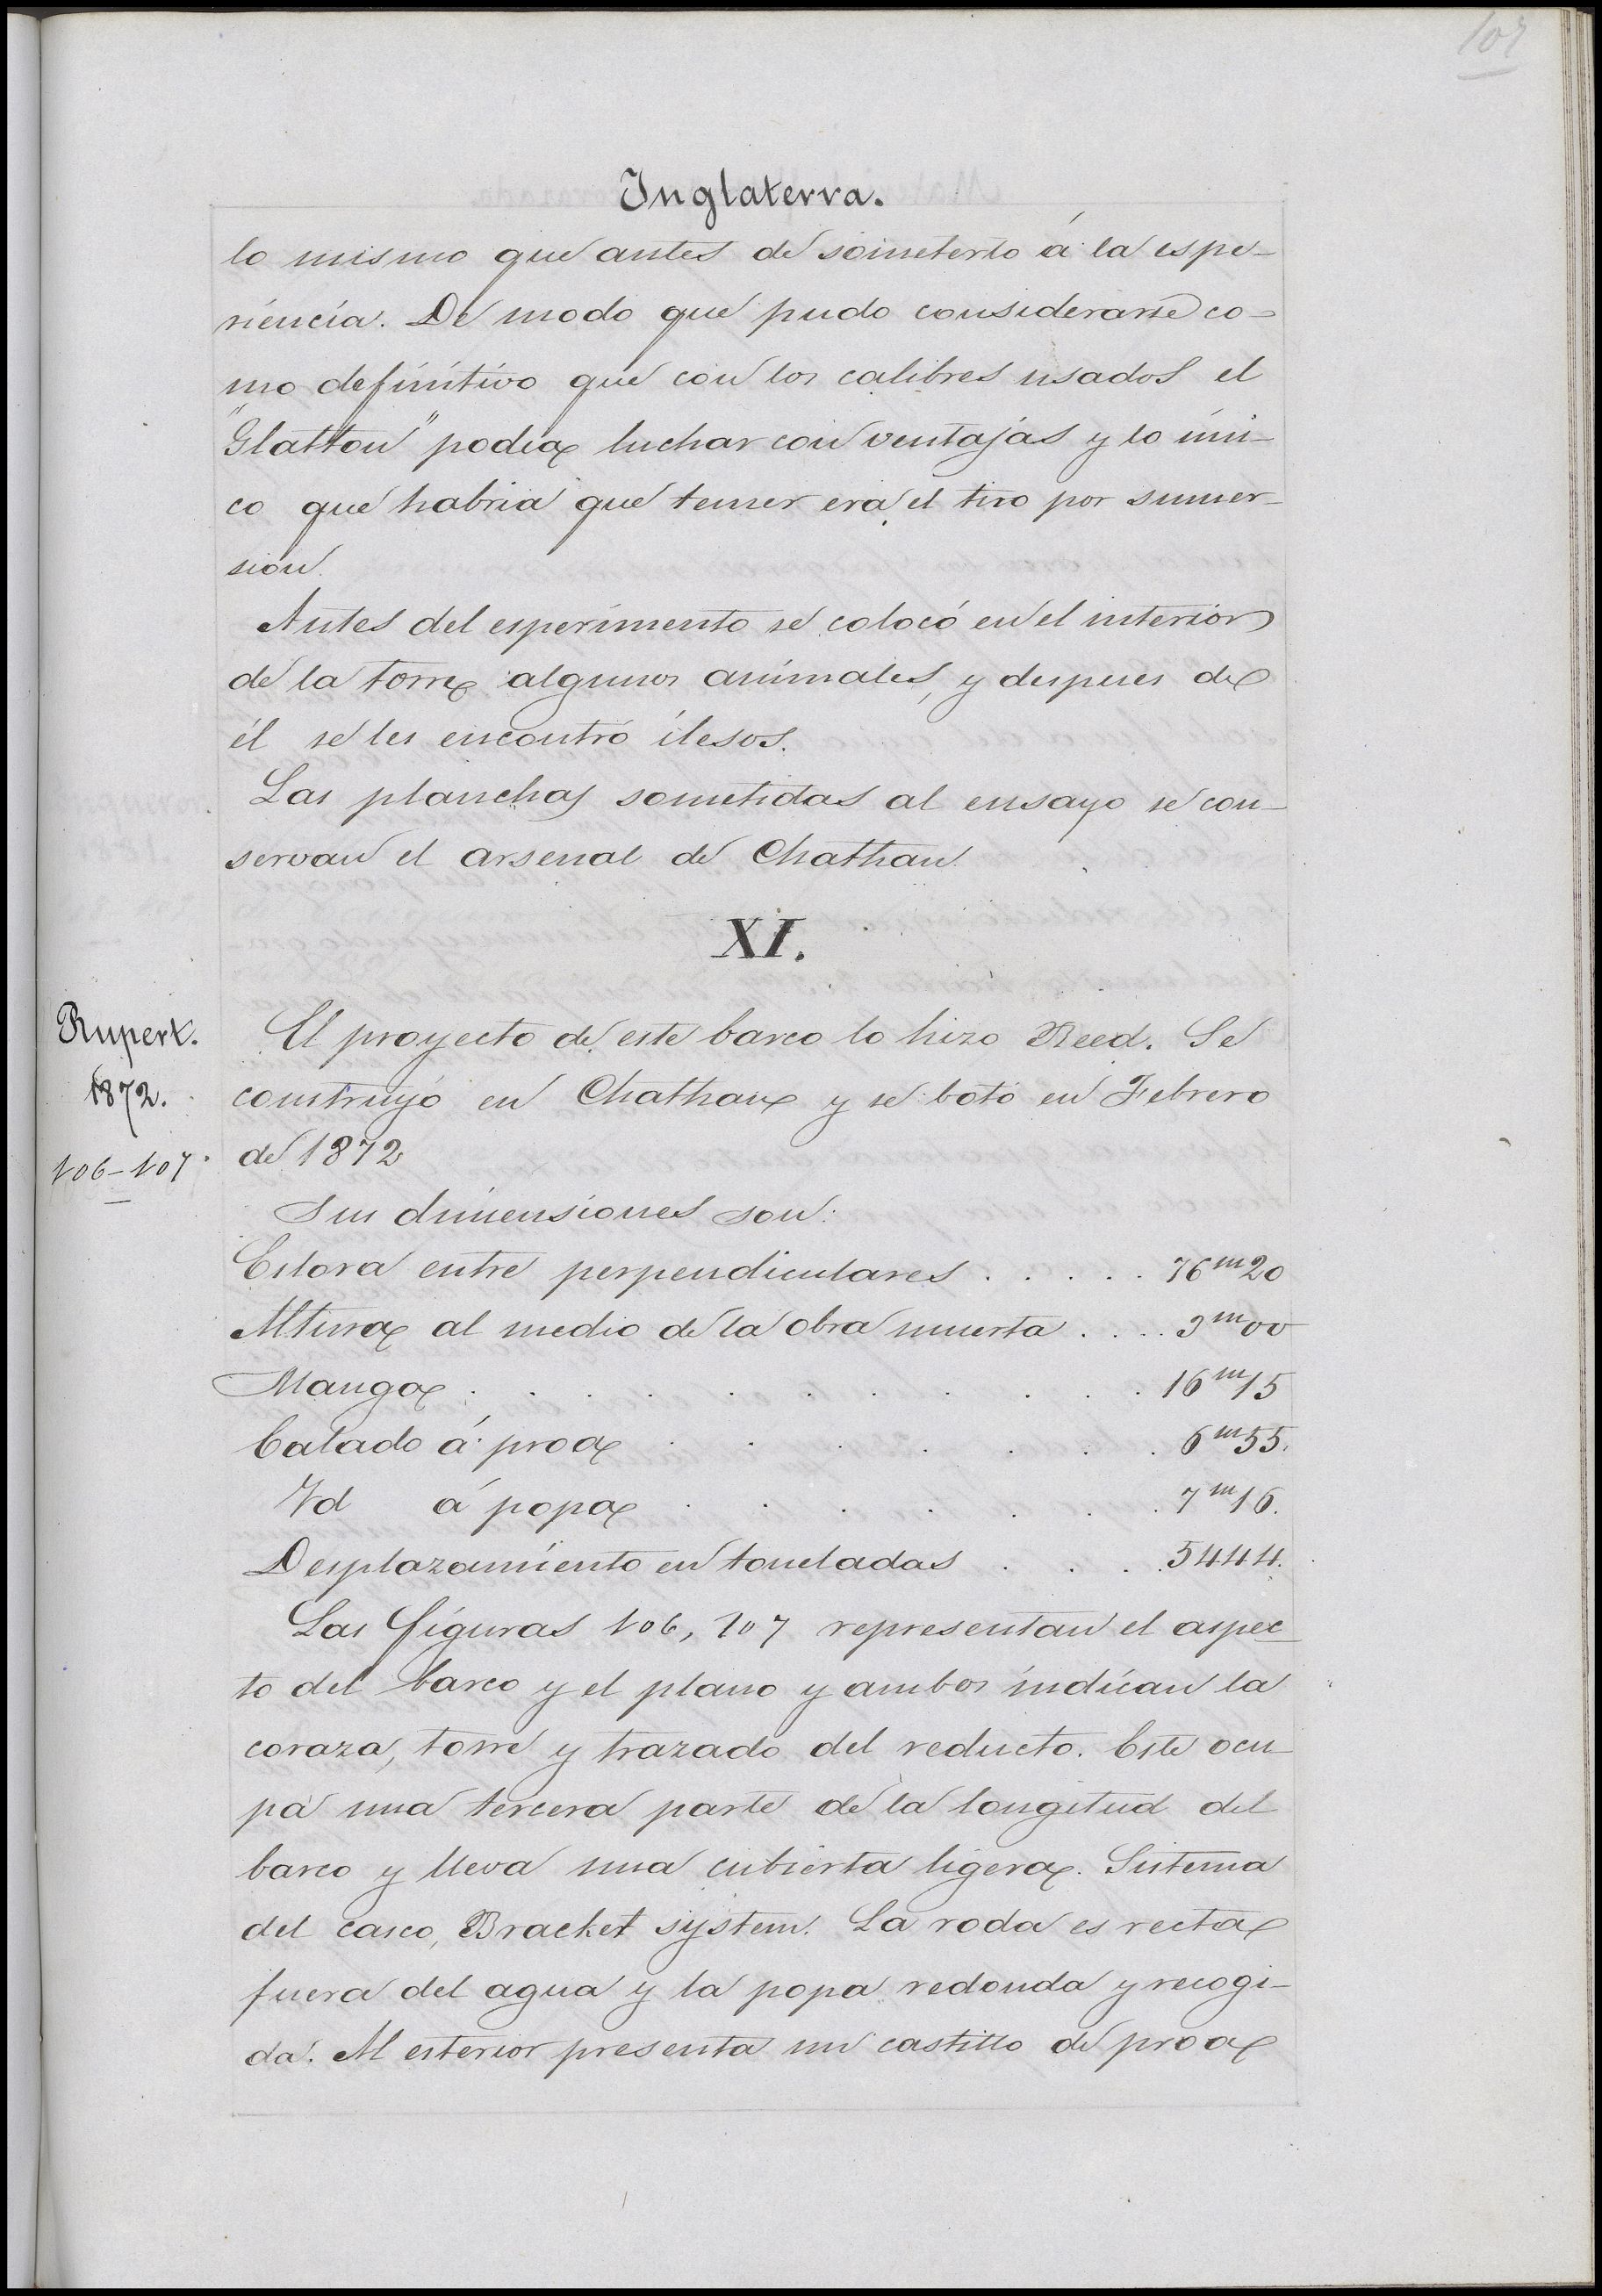 107
Inglaterra.
lo mismo que antes de someterlo á la espe-
riencia. De modo que pudo considerarse co-
mo definitivo que con los calibres usados el
"Glatton" podia luchar con ventajas y lo úni-
co que habria que temer era el tiro por sumer-
sion.
Antes del esperimento se colocó en el interior
de la torre algunos animales, y despues de
él se les encontró ilesos.
Las planchas sometidas al ensayo se con-
servan el arsenal de Chathan.
XI.
Rupert.
1872.
106-107
El proyecto de este barco lo hizo Reed. Se
construyó en Chathan y se botó en Febrero
de 1872
Sus dimensiones son:
Eslora entre perpendiculares . . . . . 76m20
Altura al medio de la obra muerta . . . . 3m00
Manga . . . . . . . . . . 16m15
Calado á proa . . . . . . . 6m55.
Id á popa . . . . . . . 7m16.
Desplazamiento en toneladas . . . . 5444.
Las figuras 106, 107 representan el aspec-
to del barco y el plano y ambos indican la
coraza, torre y trazado del reducto. Este ocu-
pa una tercera parte de la longitud del
barco y lleva una cubierta ligera. Sistema
del casco, Bracket system. La roda es recta
fuera del agua y la popa redonda y recogi-
da. Al esterior presenta un castillo de proa